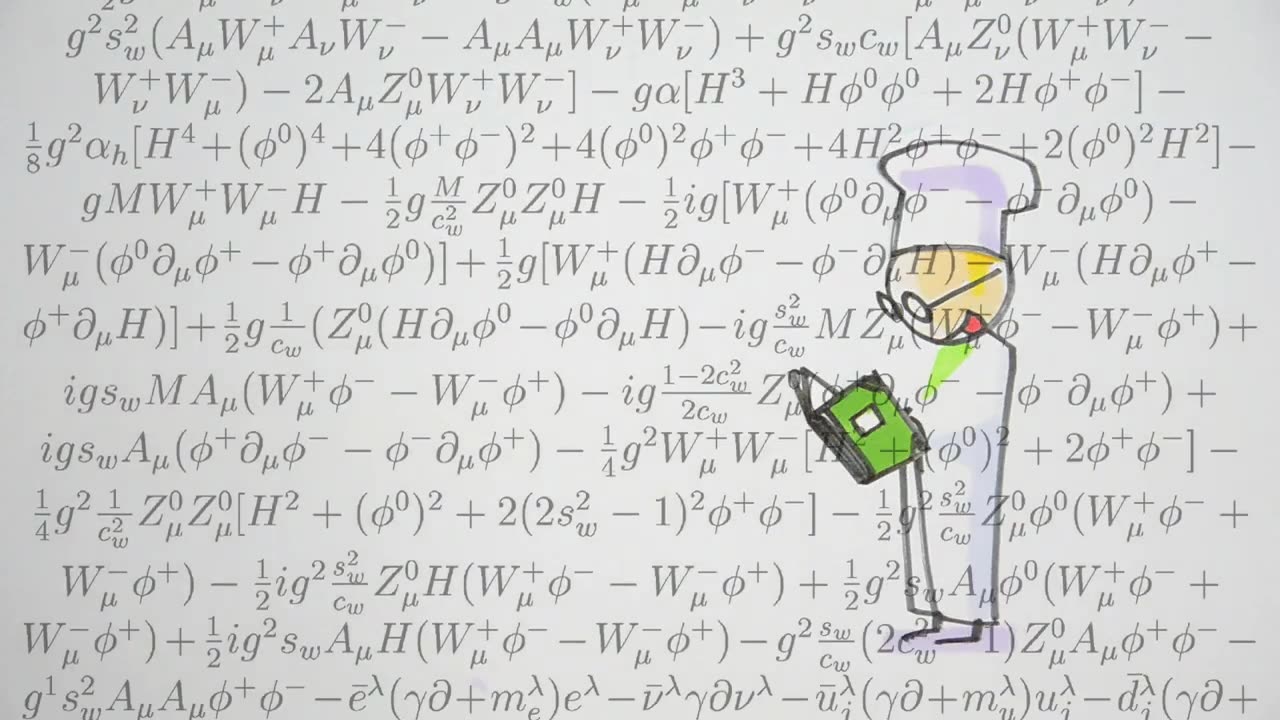 g²s_w²(A_μW_μ⁺A_νW_ν⁻ − A_μA_μW_ν⁺W_ν⁻) + g²s_wc_w[A_μZ_ν⁰(W_μ⁺W_ν⁻ −
W_ν⁺W_μ⁻) − 2A_μZ_μ⁰W_ν⁺W_ν⁻] − gα[H³ + Hϕ⁰ϕ⁰ + 2Hϕ⁺ϕ⁻] −
⅛g²α_h[H⁴+(ϕ⁰)⁴+4(ϕ⁺ϕ⁻)²+4(ϕ⁰)²ϕ⁺ϕ⁻+4H²ϕ⁺ϕ⁻+2(ϕ⁰)²H²]−
gMW_μ⁺W_μ⁻H − ½g(M/c_w²)Z_μ⁰Z_μ⁰H − ½ig[W_μ⁺(ϕ⁰∂_μϕ⁻ − ϕ⁻∂_μϕ⁰) −
W_μ⁻(ϕ⁰∂_μϕ⁺ − ϕ⁺∂_μϕ⁰)] + ½g[W_μ⁺(H∂_μϕ⁻ − ϕ⁻∂_μH) − W_μ⁻(H∂_μϕ⁺ −
ϕ⁺∂_μH)] + ½g(1/c_w)(Z_μ⁰(H∂_μϕ⁰ − ϕ⁰∂_μH) − ig(s_w²/c_w)MZ_μ⁰(W_μ⁺ϕ⁻ − W_μ⁻ϕ⁺) +
igs_wMA_μ(W_μ⁺ϕ⁻ − W_μ⁻ϕ⁺) − ig((1−2c_w²)/2c_w)Z_μ⁰(ϕ⁺∂_μϕ⁻ − ϕ⁻∂_μϕ⁺) +
igs_wA_μ(ϕ⁺∂_μϕ⁻ − ϕ⁻∂_μϕ⁺) − ¼g²W_μ⁺W_μ⁻[H² + (ϕ⁰)² + 2ϕ⁺ϕ⁻] −
¼g²(1/c_w²)Z_μ⁰Z_μ⁰[H² + (ϕ⁰)² + 2(2s_w² − 1)²ϕ⁺ϕ⁻] − ½g²(s_w²/c_w)Z_μ⁰ϕ⁰(W_μ⁺ϕ⁻ +
W_μ⁻ϕ⁺) − ½ig²(s_w²/c_w)Z_μ⁰H(W_μ⁺ϕ⁻ − W_μ⁻ϕ⁺) + ½g²s_wA_μϕ⁰(W_μ⁺ϕ⁻ +
W_μ⁻ϕ⁺) + ½ig²s_wA_μH(W_μ⁺ϕ⁻ − W_μ⁻ϕ⁺) − g²(s_w/c_w)(2c_w² − 1)Z_μ⁰A_μϕ⁺ϕ⁻ −
g¹s_w²A_μA_μϕ⁺ϕ⁻ − ē^λ(γ∂+m_e^λ)e^λ − ν̄^λγ∂ν^λ − ū_j^λ(γ∂+m_u^λ)u_j^λ − d̄_j^λ(γ∂+